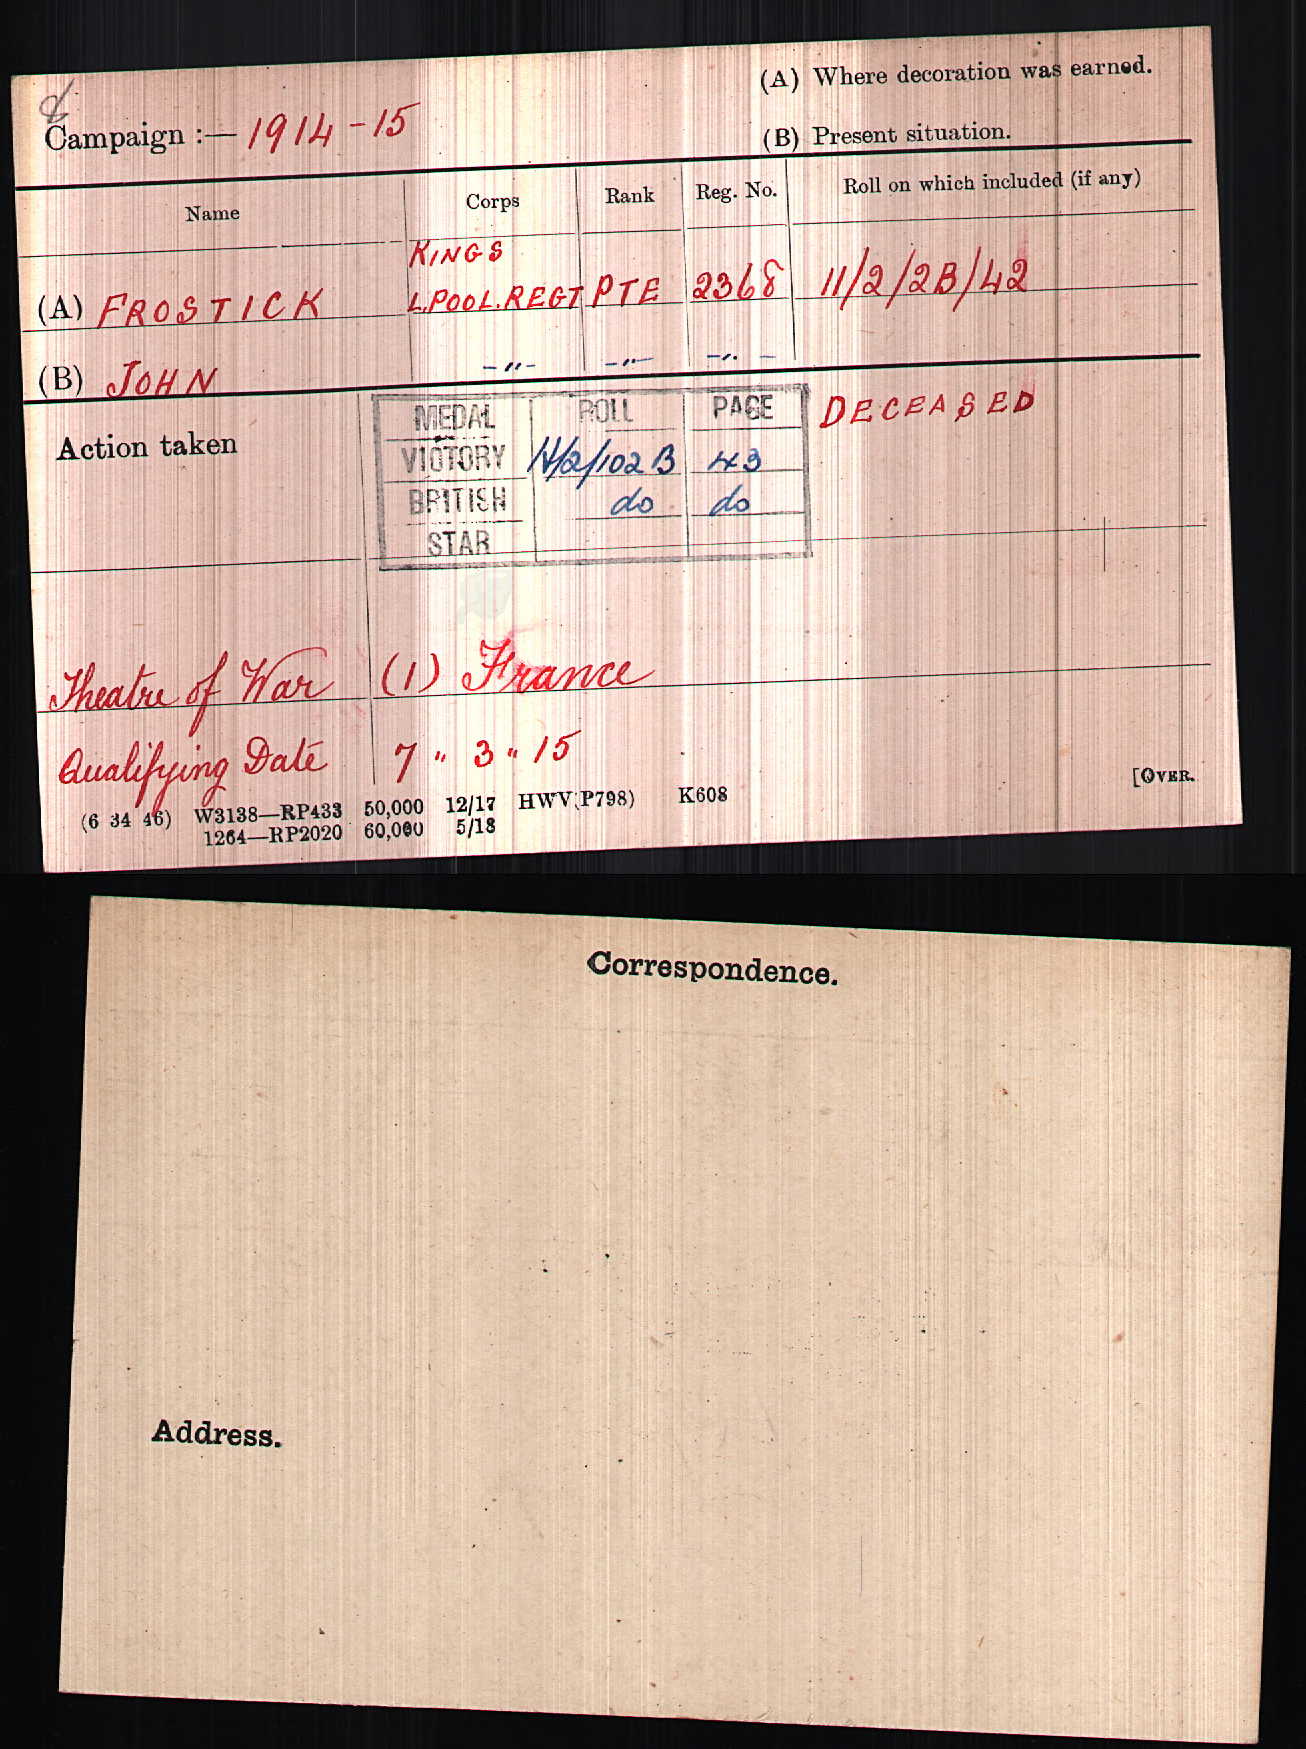 Campaign :— 1914-15
(A) Where decoration was earned.
(B) Present situation.
Name Corps Rank Reg. No. Roll on which included (if any)
KINGS
(A) FROSTICK L.POOL.REGT PTE 2368 11/2/2B/42
(B) JOHN -"- -"- -"-
Action taken
MEDAL ROLL PAGE
VICTORY H/2/102B 43
BRITISH do do
STAR
DECEASED
Theatre of War (1) France
Qualifying Date 7 " 3 " 15
[OVER.
(6 34 46) W3138—RP433 50,000 12/17 HWV(P798) K608
1264—RP2020 60,000 5/18
Correspondence.
Address.